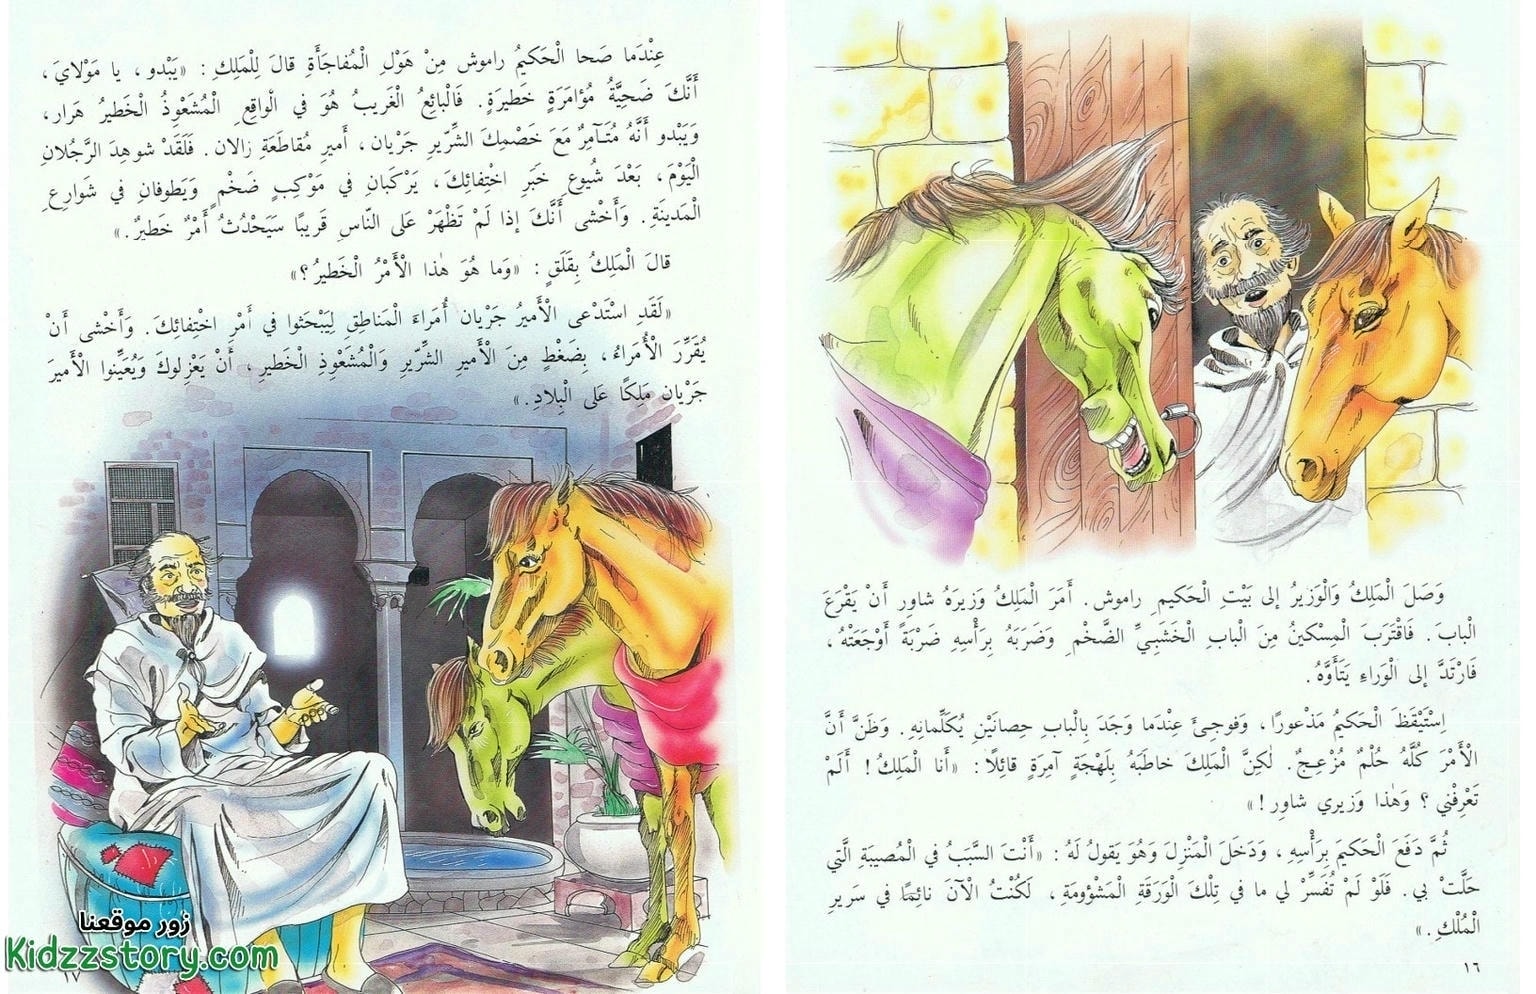 وَصَلَ الْمَلِكُ وَالْوَزيرُ إلى بَيْتِ الْحَكيمِ راموش. أَمَرَ الْمَلِكُ وَزيرَهُ شاوِر أَنْ يَقْرَعَ
الْبابَ. فَاقْتَرَبَ الْمِسْكينُ مِنَ الْبابِ الْخَشَبِيِّ الضَّخْمِ وَضَرَبَهُ بِرَأْسِهِ ضَرْبَةً أَوْجَعَتْهُ،
فَارْتَدَّ إلى الْوَراءِ يَتَأَوَّهُ.
اِسْتَيْقَظَ الْحَكيمُ مَذْعورًا، وَفوجِئَ عِنْدَما وَجَدَ بِالْبابِ حِصانَيْنِ يُكَلِّمانِهِ. وَظَنَّ أَنَّ
الْأَمْرَ كُلَّهُ حُلْمٌ مُزْعِجٌ. لٰكِنَّ الْمَلِكَ خاطَبَهُ بِلَهْجَةٍ آمِرَةٍ قائِلًا: «أَنا الْمَلِكُ! أَلَمْ
تَعْرِفْني؟ وَهٰذا وَزيري شاوِر!»
ثُمَّ دَفَعَ الْحَكيمَ بِرَأْسِهِ، وَدَخَلَ الْمَنْزِلَ وَهُوَ يَقولُ لَهُ: «أَنْتَ السَّبَبُ في الْمُصيبَةِ الَّتي
حَلَّتْ بي. فَلَوْ لَمْ تُفَسِّرْ لي ما في تِلْكَ الْوَرَقَةِ الْمَشْؤومَةِ، لَكُنْتُ الْآنَ نائِمًا في سَريرِ
الْمُلْكِ.»
١٦
عِنْدَما صَحا الْحَكيمُ راموش مِنْ هَوْلِ الْمُفاجَأَةِ قالَ لِلْمَلِكِ: «يَبْدو، يا مَوْلايَ،
أَنَّكَ ضَحِيَّةُ مُؤامَرَةٍ خَطيرَةٍ. فَالْبائِعُ الْغَريبُ هُوَ في الْواقِعِ الْمُشَعْوِذُ الْخَطيرُ هَرار،
وَيَبْدو أَنَّهُ مُتَآمِرٌ مَعَ خَصْمِكَ الشِّرّيرِ جَرْيان، أَميرِ مُقاطَعَةِ زالان. فَلَقَدْ شوهِدَ الرَّجُلانِ
الْيَوْمَ، بَعْدَ شُيوعِ خَبَرِ اخْتِفائِكَ، يَرْكَبانِ في مَوْكِبٍ ضَخْمٍ وَيَطوفانِ في شَوارِعِ
الْمَدينَةِ. وَأَخْشى أَنَّكَ إذا لَمْ تَظْهَرْ عَلى النّاسِ قَريبًا سَيَحْدُثُ أَمْرٌ خَطيرٌ.»
قالَ الْمَلِكُ بِقَلَقٍ: «وَما هُوَ هٰذا الْأَمْرُ الْخَطيرُ؟»
«لَقَدِ اسْتَدْعى الْأَميرُ جَرْيان أُمَراءَ الْمَناطِقِ لِيَبْحَثوا في أَمْرِ اخْتِفائِكَ. وَأَخْشى أَنْ
يُقَرِّرَ الْأُمَراءُ، بِضَغْطٍ مِنَ الْأَميرِ الشِّرّيرِ وَالْمُشَعْوِذِ الْخَطيرِ، أَنْ يَعْزِلوكَ وَيُعَيِّنوا الْأَميرَ
جَرْيان مَلِكًا عَلى الْبِلادِ.»
زور موقعنا
Kidzzstory.com